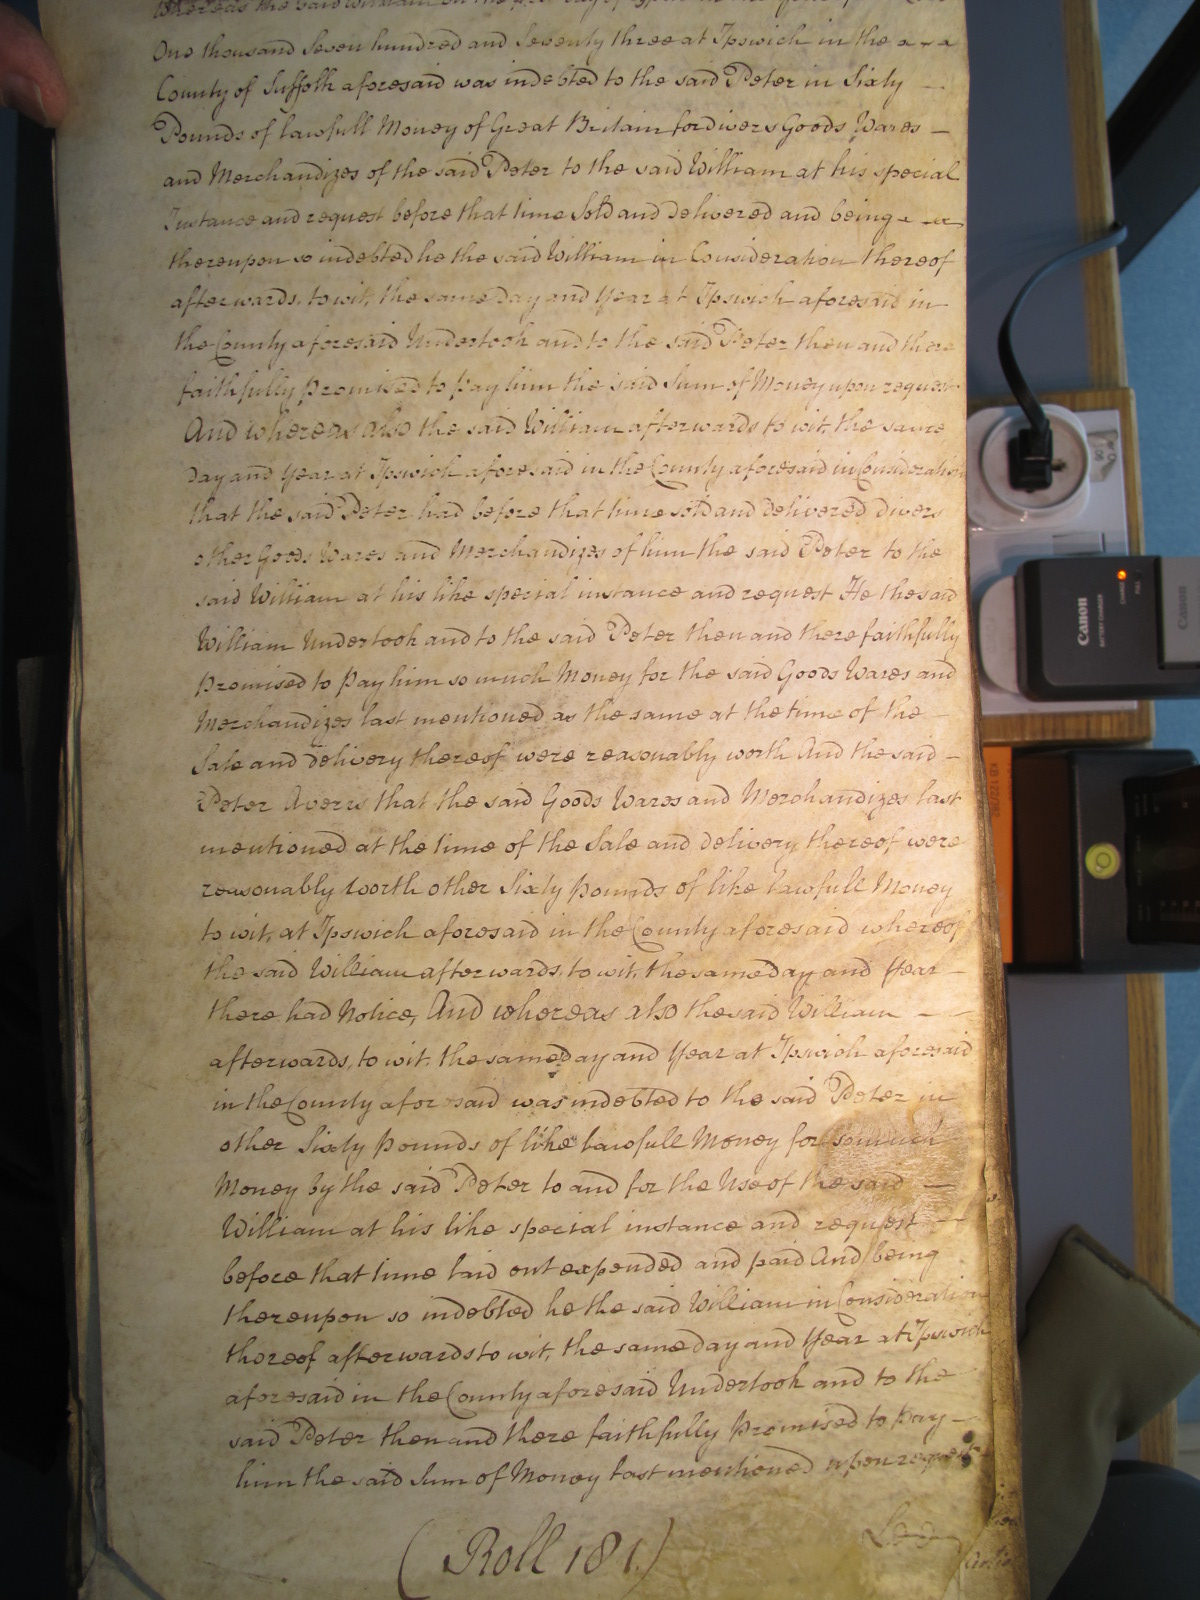 Whereas the said William on the
One thousand Seven hundred and Seventy three at Ipswich in the
County of Suffolk aforesaid was indebted to the said Peter in Sixty
Pounds of lawfull Money of Great Britain for divers Goods Wares
and Merchandizes of the said Peter to the said William at his special
Instance and request before that time Sold and delivered and being
thereupon so indebted he the said William in Consideration thereof
afterwards, to wit, the same day and Year at Ipswich aforesaid in
the County aforesaid Undertook and to the said Peter then and there
faithfully promised to pay him the said Sum of Money upon request
And whereas also the said William afterwards to wit, the same
day and Year at Ipswich aforesaid in the County aforesaid in Consideration
that the said Peter had before that time sold and delivered divers
other Goods Wares and Merchandizes of him the said Peter to the
said William at his like special instance and request He the said
William Undertook and to the said Peter then and there faithfully
Promised to Pay him so much Money for the said Goods Wares and
Merchandizes last mentioned as the same at the time of the
Sale and delivery thereof were reasonably worth And the said
Peter Averrs that the said Goods Wares and Merchandizes last
mentioned at the time of the Sale and delivery thereof were
reasonably worth other Sixty pounds of like lawfull Money
to wit, at Ipswich aforesaid in the County aforesaid whereof
the said William afterwards, to wit, the same day and Year
there had Notice, And whereas also the said William
afterwards, to wit, the same day and Year at Ipswich aforesaid
in the County aforesaid was indebted to the said Peter in
other Sixty pounds of like lawfull Money for so much
Money by the said Peter to and for the Use of the said
William at his like special instance and request
before that time laid out expended and paid And being
thereupon so indebted he the said William in Consideration
thereof afterwards to wit, the same day and Year at Ipswich
aforesaid in the County aforesaid Undertook and to the
said Peter then and there faithfully Promised to Pay
him the said Sum of Money last mentioned upon request
(Roll 181.)
Canon
BATTERY CHARGER
CHARGE
FULL
Canon
KB 122/392